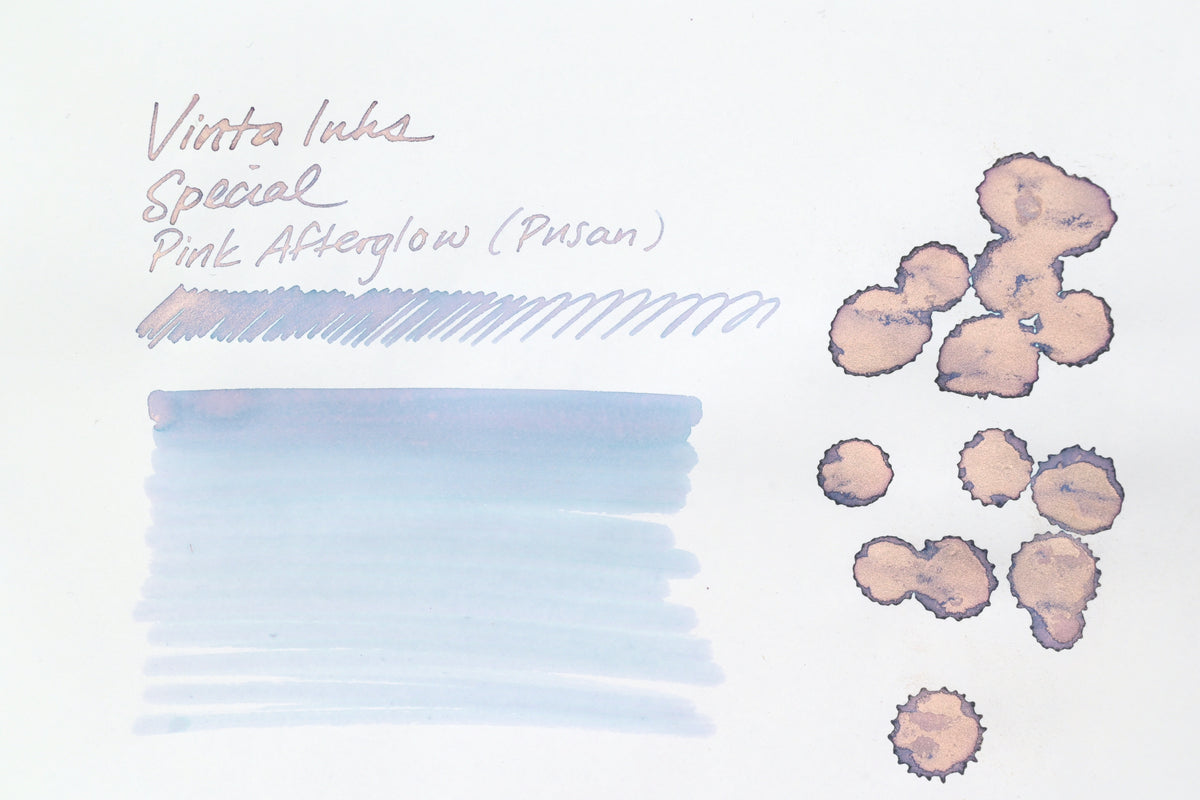 Vinta Inks
Special
Pink Afterglow (Pusan)